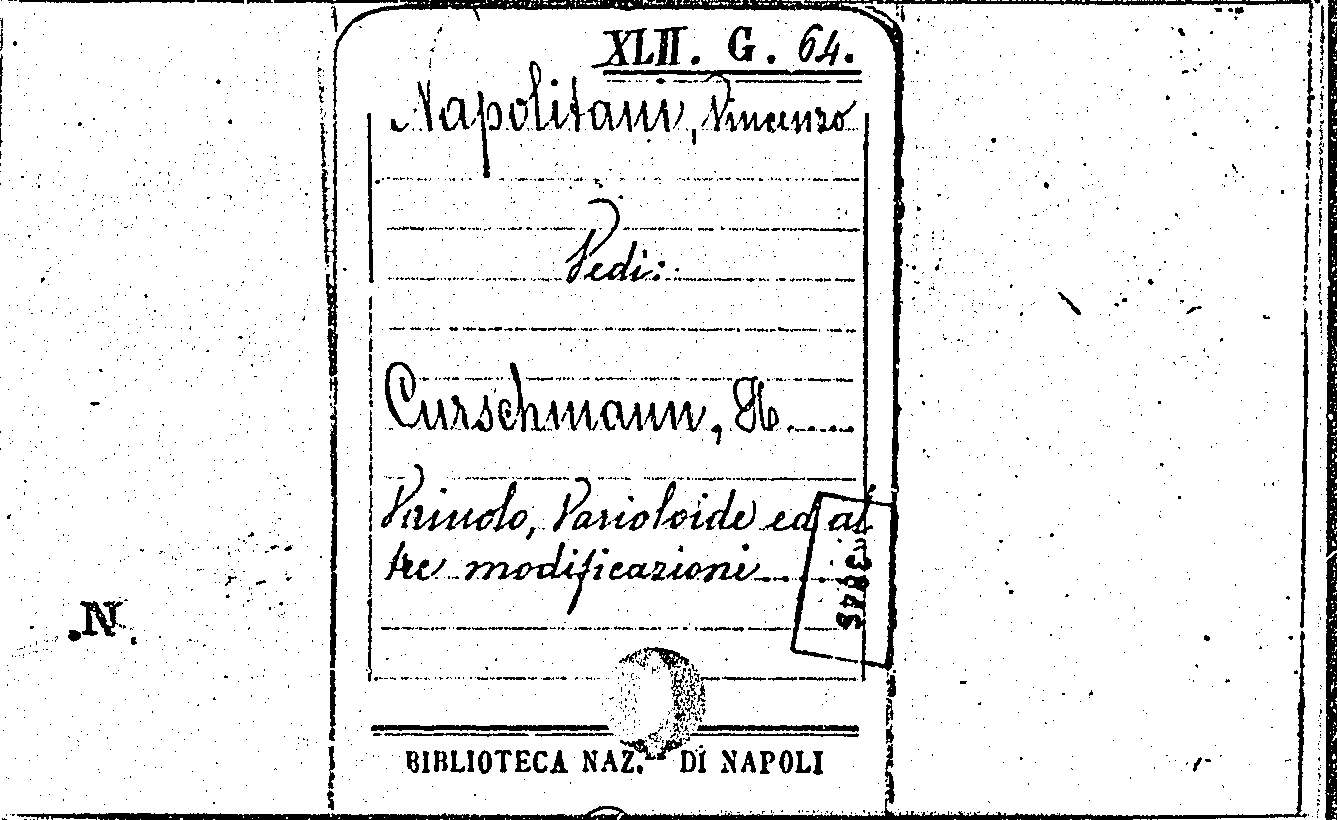 XLII. G. 64.
Napolitani, Vincenzo
Vedi:
Curschmann, H.
Vaiuolo, Varioloide ed al
tre modificazioni
3845
N.
BIBLIOTECA NAZ.le DI NAPOLI